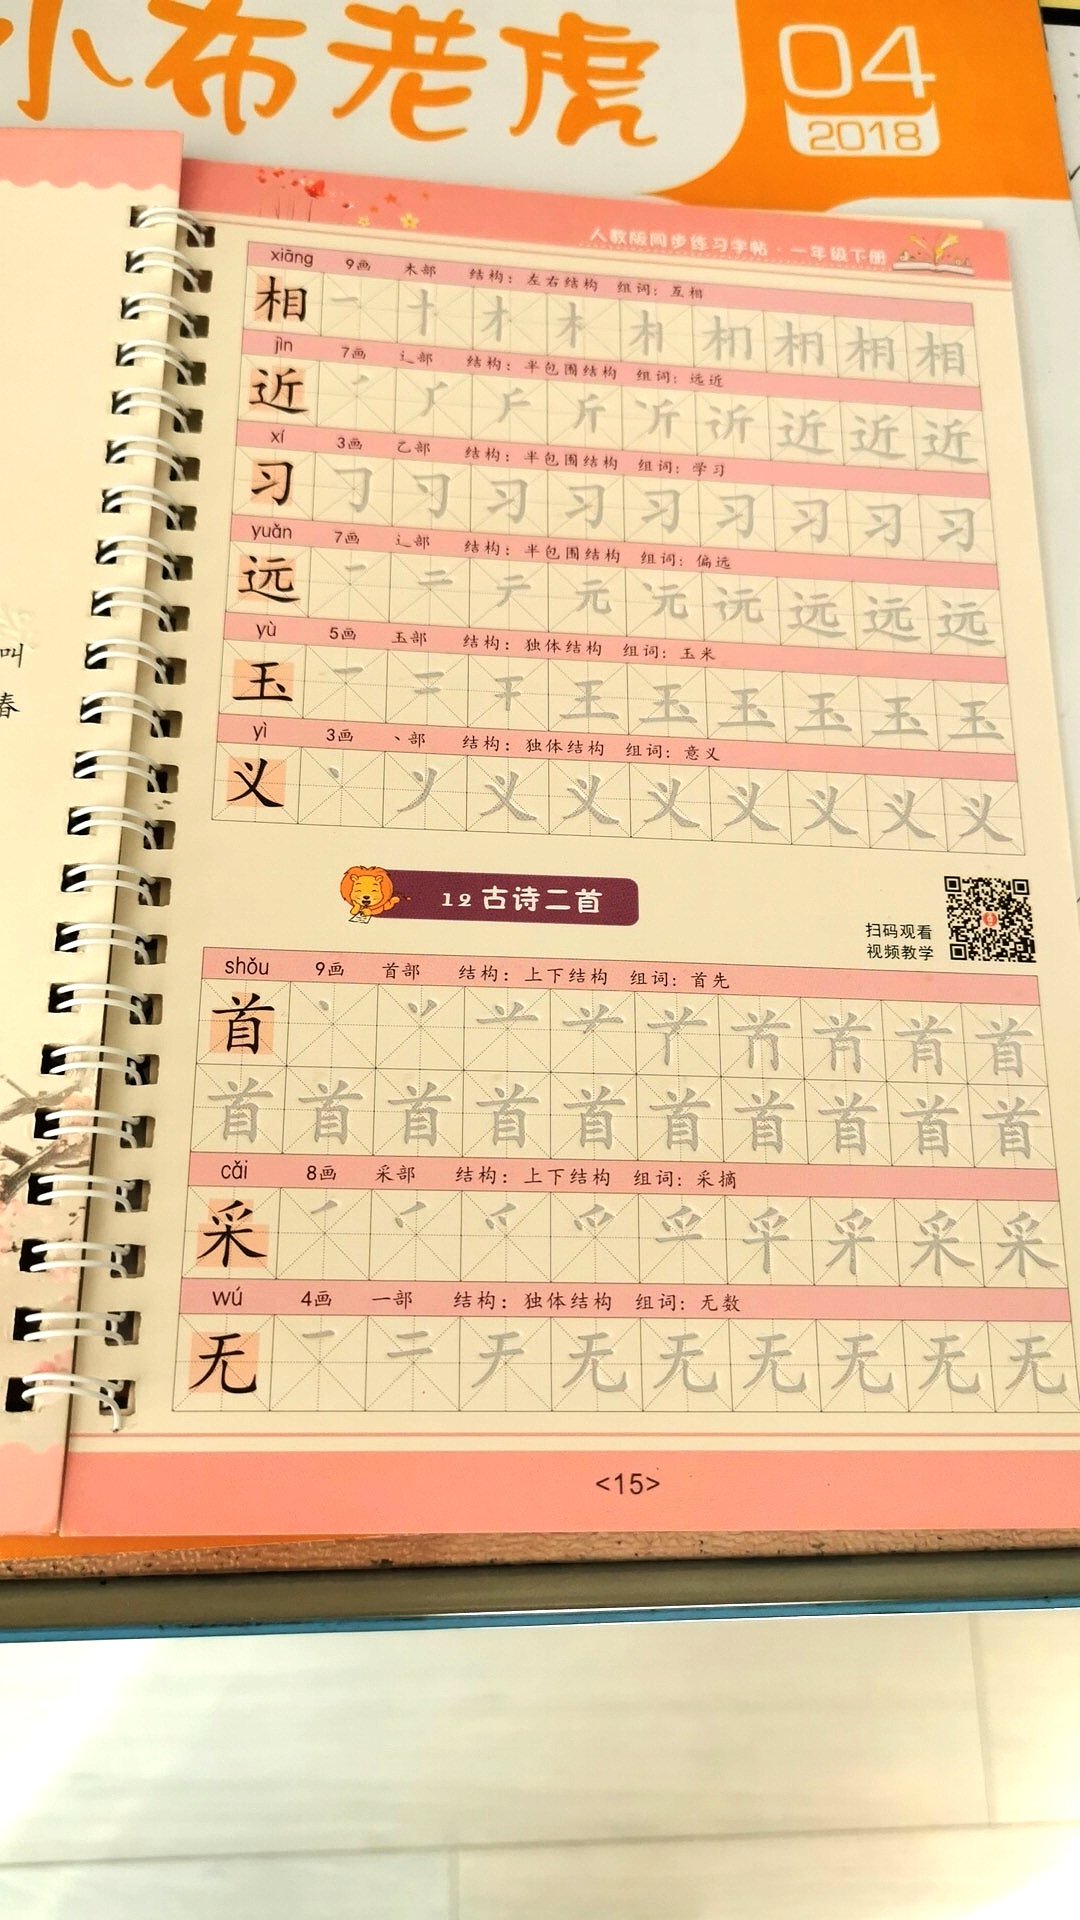 小布老虎
04
2018
人教版同步练习字帖·一年级下册
xiāng 9画 木部 结构：左右结构 组词：互相
相 相
jìn 7画 辶部 结构：半包围结构 组词：远近
近 斤 近 近 近
xí 3画 乙部 结构：半包围结构 组词：学习
习 习 习 习 习 习 习 习
yuǎn 7画 辶部 结构：半包围结构 组词：偏远
远 一 二 元 远 远 远
yù 5画 玉部 结构：独体结构 组词：玉米
玉 一 二 干 王 玉 玉 玉 玉 玉
yì 3画 丶部 结构：独体结构 组词：意义
义 义 义 义 义 义 义 义
12 古诗二首
扫码观看
视频教学
shǒu 9画 首部 结构：上下结构 组词：首先
首 首
首 首 首 首 首 首 首 首 首 首
cǎi 8画 采部 结构：上下结构 组词：采摘
采 采 采
wú 4画 一部 结构：独体结构 组词：无数
无 一 二 无 无 无 无 无 无
<15>
叫
春